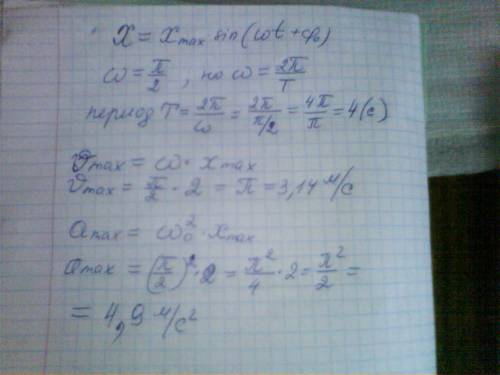 X = x_max sin(ωt + φ₀)
ω = π/2, но ω = 2π/T
период T = 2π/ω = 2π/π/2 = 4π/π = 4(с)
υ_max = ω · x_max
υ_max = π/2 · 2 = π = 3,14 м/с
a_max = ω₀² · x_max
a_max = (π/2)² · 2 = π²/4 · 2 = π²/2 =
= 4,9 м/с²